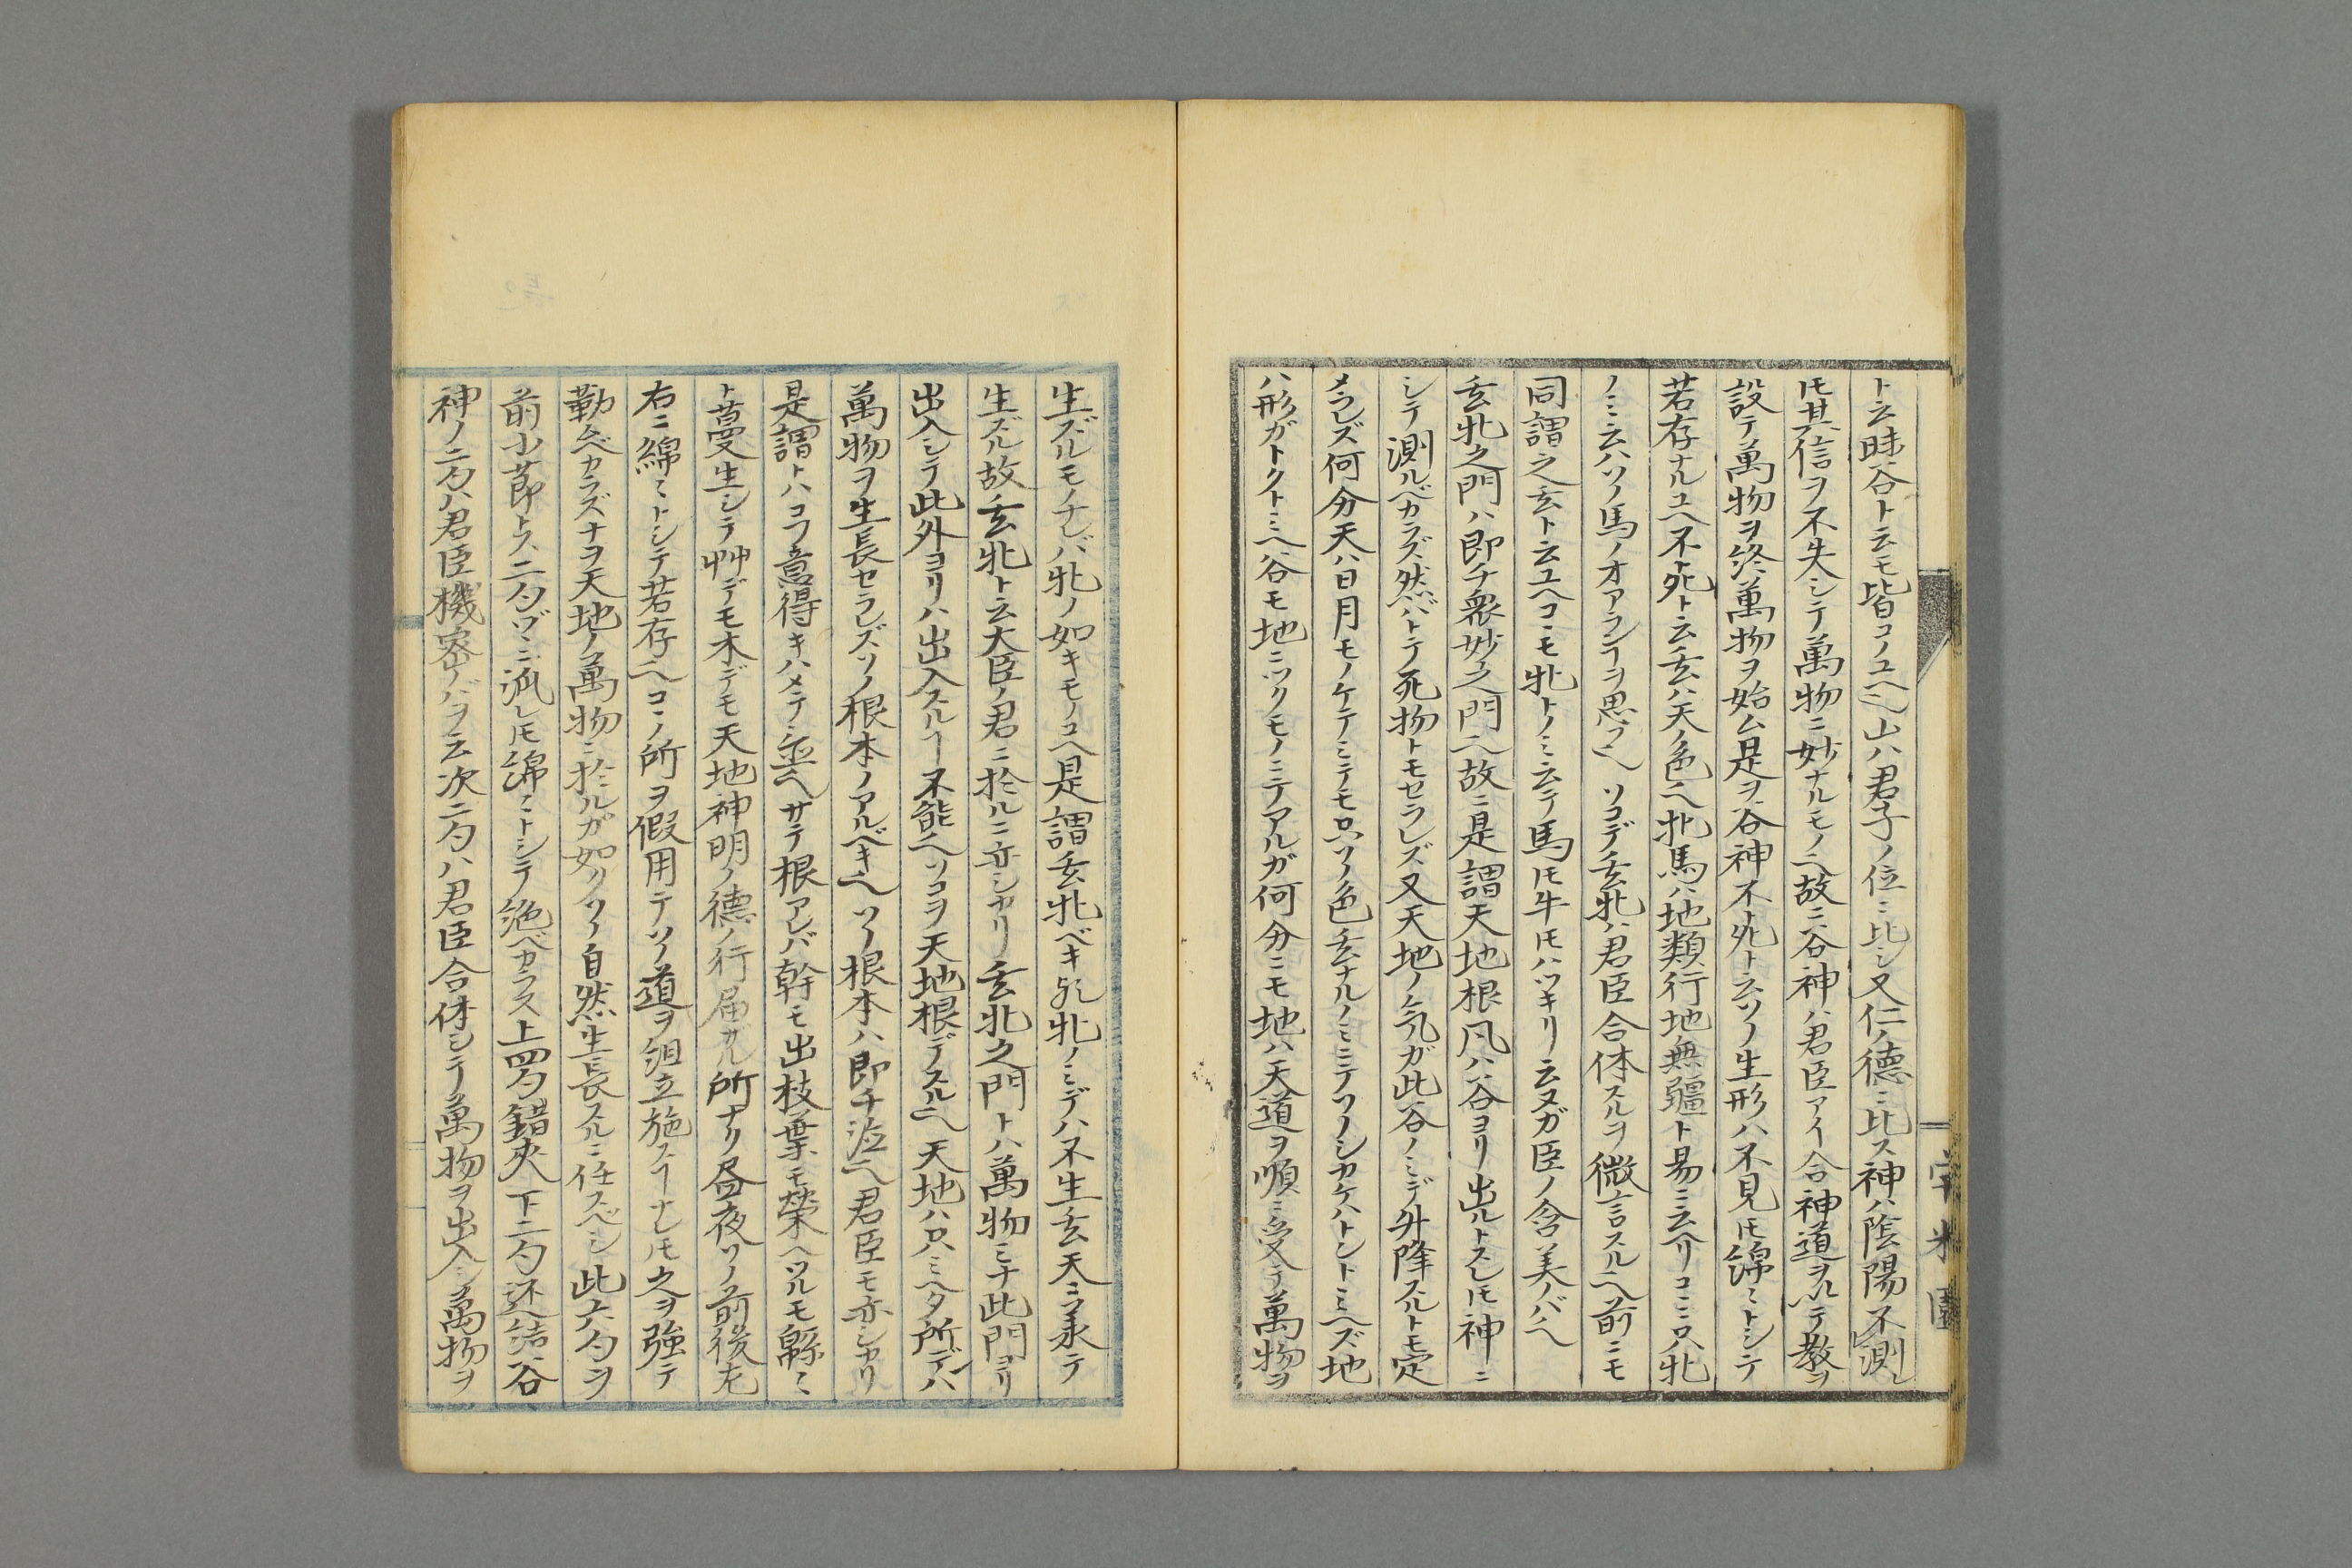 ト云畦谷ト云モ皆コノユヘ也山ハ君子ノ位ニ比シ又仁ノ徳ニ比ス神ハ陰陽不測レ
𪜈其信ヲ不失シテ萬物ニ妙ナルモノ也故ニ谷神ハ君臣アイ合神道ヲ以テ教ヲ
設テ萬物ヲ終萬物ヲ始ム是ヲ谷神不死ト云ソノ生形ハ不見𪜈綿〻トシテ
若存ナルユヘ不死ト云玄ハ天ノ色也牝馬ハ地類行地無疆ト易ニ云ヘリコヽニ只牝
ノミ云ハソノ馬ノオアランヿヲ思フ也ソコデ玄牝ハ君臣合体スルヲ微言スル也前ニモ
同謂之玄ト云ユヘコヽモ牝トノミ云テ馬𪜈牛𪜈ハツキリ云ヌガ臣ノ含美ノバ也
玄牝之門ハ即チ衆妙之門也故ニ是謂天地根凡ハ谷ヨリ出ルトスレ𪜈神ニ
シテ測ルベカラズ然バトテ死物トモセラレズ又天地ノ気ガ此谷ノミデ升降スルトモ定
メラレズ何分天ハ日月モノケテミテモ只ソノ色玄ナルノミニテソノシカケハトントミヘズ地
ハ形ガトクトミヘ谷モ地ニツクモノニテアルガ何分ニモ地ハ天道ヲ順ニ受テ萬物ヲ
生ズルモノナレバ牝ノ如キモノユヘ是謂玄牝ベキ乢牝ノミデハ不生玄天ニヲ承テ
生ズル故玄牝ト云大臣ノ君ニ於ルニ亦シカリ玄牝之門トハ萬物ミナ此門ヨリ
出入シテ此外ヨリハ出入スルヿ不能也ソコヲ天地根デスル也天地ハ只ミヘタ所デハ
萬物ヲ生長セラレズソノ根本ノアルベキ也ソノ根本ハ即チ泣也君臣モ亦シカリ
是謂トハコフ意得キハメテ並也サテ根アレバ幹モ出枝葉モ榮ヘツルモ緜〻
ト蔓生シテ艸デモ木デモ天地神明ノ徳ノ行届ガル所ナリ昼夜ソノ前後左
右ニ綿〻トシテ若存也コヽノ所ヲ假用テソノ道ヲ組立施スヿナレ𪜈之ヲ強テ
勤ムベカラズナヲ天地ノ萬物ニ於ルガ如クソノ自然生長スルニ任スベシ此六勺ヲ
前小莭トス二勺ヅヽニ㳅レ𪜈綿〻トシテ絶ベカラス上四勺錯夾下二勺还結谷
神ノ二勺ハ君臣機密ノバヲ云次二勺ハ君臣合体シテ萬物ヲ出入シ萬物ヲ